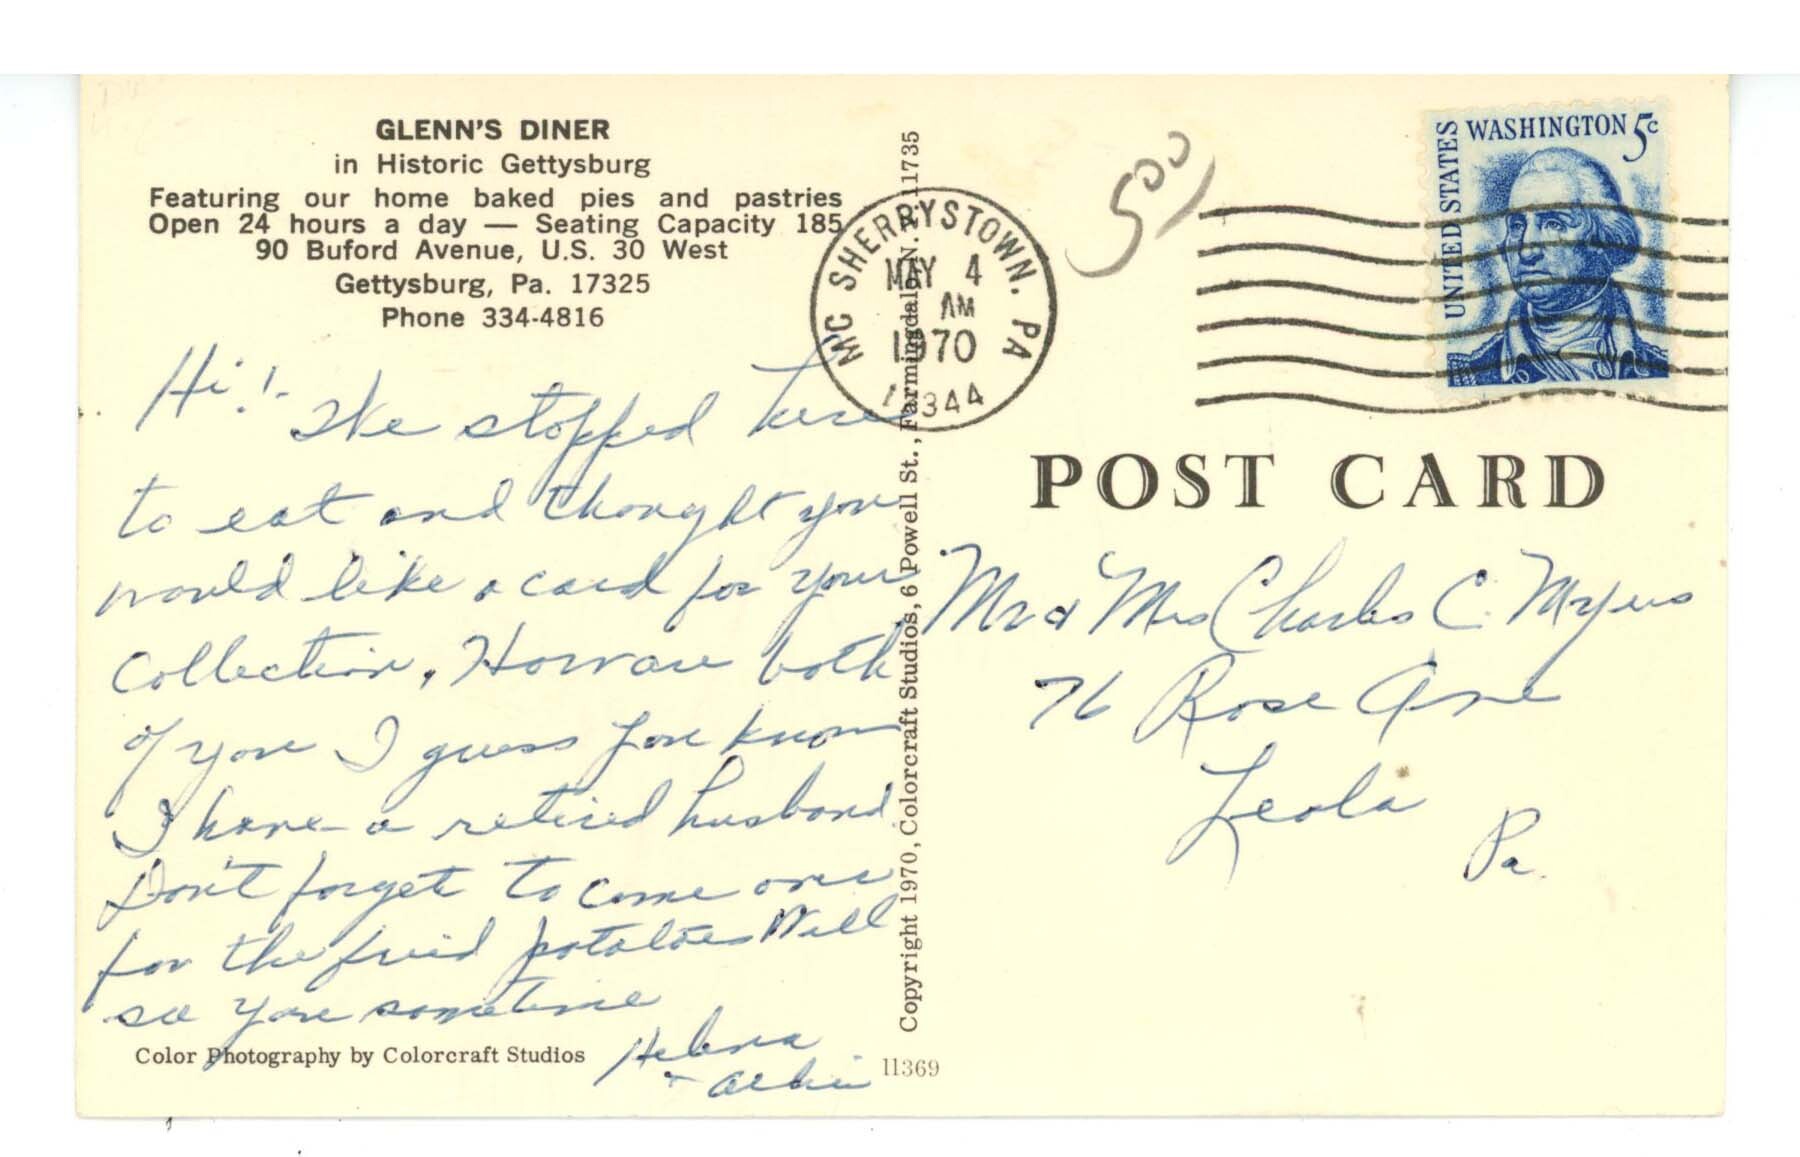 GLENN'S DINER
in Historic Gettysburg
Featuring our home baked pies and pastries
Open 24 hours a day — Seating Capacity 185
90 Buford Avenue, U.S. 30 West
Gettysburg, Pa. 17325
Phone 334-4816
Hi! - We stopped here
to eat and thought you
would like a card for your
Collection. How are both
of you I guess you know
I have a retired husband.
Don't forget to come over
for the fried potatoes Will
see you sometime
Helena
+
Color Photography by Colorcraft Studios
11369
Copyright 1970, Colorcraft Studios, 6 Powell St., Farmingdale, N. 11735
MC SHERRYSTOWN. PA
MAY 4
AM
1970
17344
500
UNITED STATES
WASHINGTON 5c
POST CARD
Mr & Mrs Charles C. Myers
76 Rose Ave
Leola
Pa.